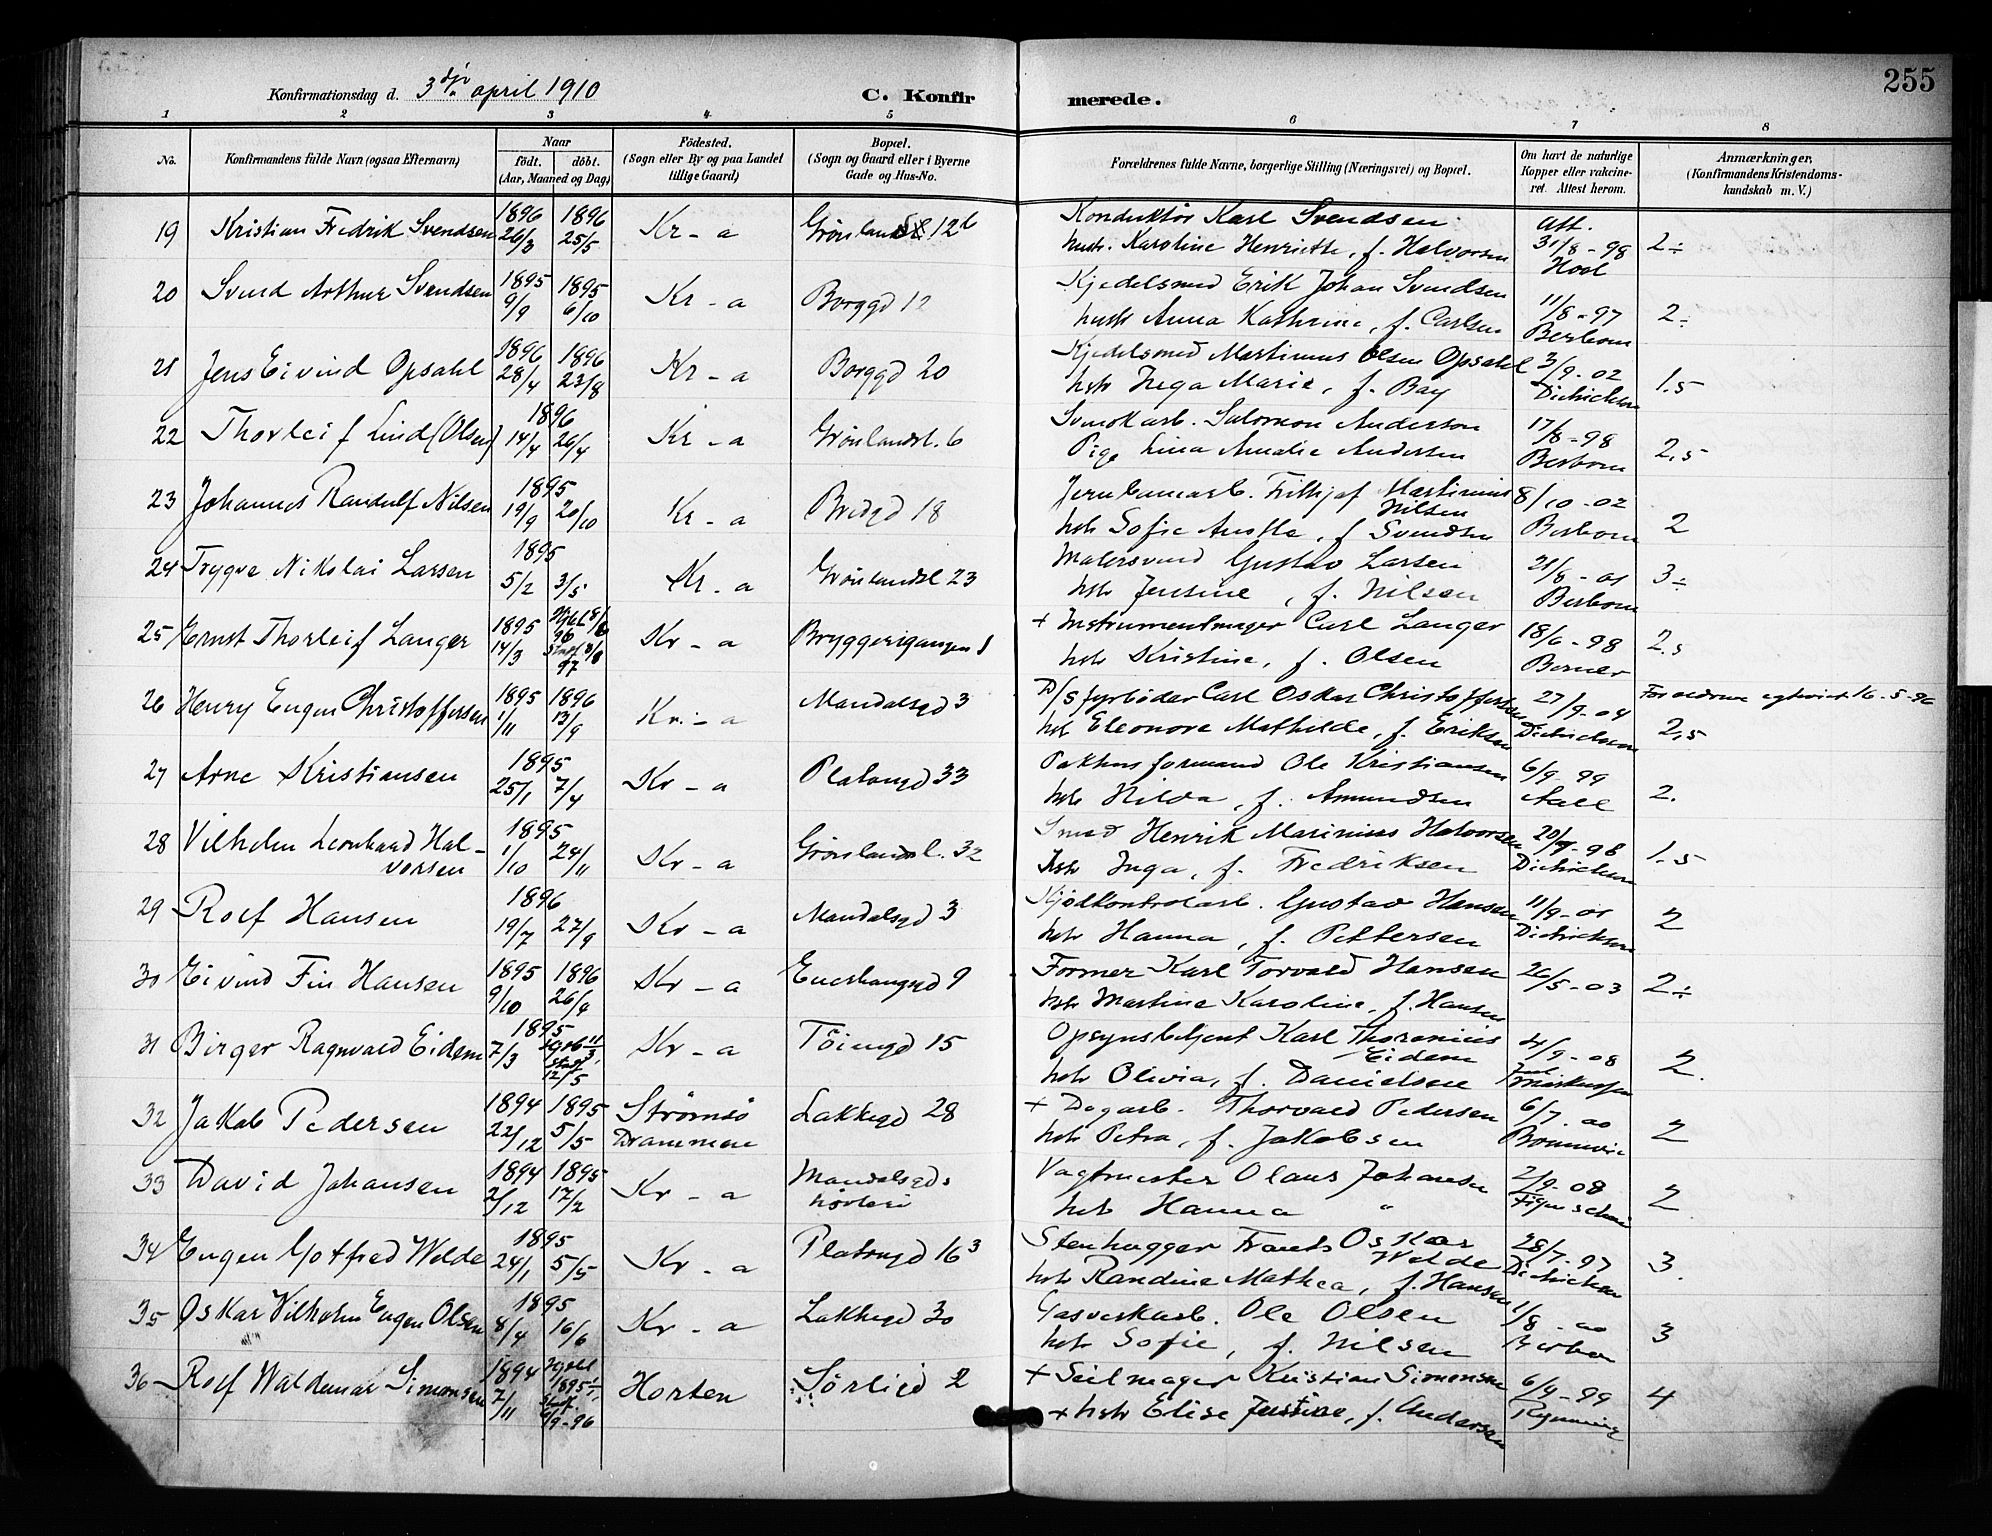 255
Konfirmationsdag d. 3dje april 1910
C. Konfirmerede.
1 2 3 4 5 6 7 8
No. Konfirmandens fulde Navn (ogsaa Efternavn) Naar født. døbt. (Aar, Maaned og Dag) Fødested. (Sogn eller By og paa Landet tillige Gaard) Bopæl. (Sogn og Gaard eller i Byerne Gade og Hus-No. Forældrenes fulde Navne, borgerlige Stilling (Næringsvei) og Bopæl. Om havt de naturlige Kopper eller vaccineret. Attest herom. Anmærkninger, (Konfirmandens Kristendomskundskab m. V.)
19 Kristian Fredrik Svendsen 1896 26/3 1896 25/5 Kr - a Grønlandsl 12b Konduktør Karl Svendsen Att. 31/8 - 98 2 ÷
hustr. Karoline Henriette, f. Halvorsen
20 Svend Arthur Svendsen 1895 9/9 1895 6/10 Kr - a Borggd 12 Kjedelsmed Erik Johan Svendsen 11/8 - 97 2 ÷
hustr Anna Kathrine, f. Carlsen Berbom
21 Jens Eivind Opsahl 1896 28/4 1896 23/8 Kr - a Borggd 20 Kjedelsmed Martinius Olsen Opsahl 3/9 - 02 1.5
hstr Inga Marie, f. Bay Dietrichson
22 Thorleif Lind (Olsen) 1896 14/4 26/4 Kr - a Grønlandsl. 6 Salomon Anderson 17/8 - 98 2,5
Pige Lina Amalie Andersen Berbom
23 Johannes Randulf Nilsen 1895 19/9 20/10 Kr - a Bredgd 18 Jernbanearb. Frithjof Martinius Nilsen 8/10 - 02 2
hstr Sofie f Svendsen Berbom
24 Trygve Nikolai Larsen 1895 5/2 3/5 Kr - a Grønlandsl 23 Malersvend Gustav Larsen 21/8 - 01 3 ÷
hstr Jensine, f. Nilsen Berbom
25 Ernst Thorleif Langer 1895 14/3 Kr - a Bryggerigangen 1 + Instrumentmager Carl Langer 18/6 - 98 2.5
hstr Kristine, f. Olsen Berner
26 Henry Eugen Christoffersen 1895 1/11 1896 13/9 Kr. - a Mandalsgd 3 D/S fyrbøder Carl Oskar Christoffersen 27/9 - 04 Forældrene egtevied 16 - 5 - 96
hstr Eleonore Mathilde, f. Eriksen Dietrichson 2,5
27 Arne Kristiansen 1895 25/1 7/4 Kr - a Platougd 33 Pakhusformand Ole Kristiansen 6/9 - 99 2.
hstr Hilda, f. Amundsen Aall
28 Vilhelm Leonhard Halvorsen 1895 1/10 24/11 Kr - a Grønlandsl. 32 Smed Henrik Marinius Halvorsen 20/9 - 98 1.5
hstr Inga, f. Fredriksen Dietrichson
29 Rolf Hansen 1896 19/7 27/9 Kr - a Mandalsgd 3 Kjødkontrolarb. Gustav Hansen 11/9 - 01 2
hstr Hanna, f. Pettersen Dietrichson
30 Eivind Fin Hansen 1895 9/10 1896 26/4 Kr - a Enerhaugsgd 9 Former Karl Torvald Hansen 26/5 - 03 2 ÷
hstr Martine Karoline, f. Hansen
31 Birger Ragnvald Eidem 1895 7/3 12/5 Kr - a Töiengd 15 Opsynsbetjent Karl Eidem 4/9 - 08 2.
hstr Olivia, f. Danielsen
32 Jakob Pedersen 1894 22/12 1895 5/5 Strømsø Drammen Lakkegd 28 + Dagarb. Thorvald Pedersen 6/7 - 00 2
hstr Petra, f. Jakobsen
33 David Johansen 1894 2/12 1895 17/2 Kr - a Mandalsgds Vagtmester Olaus Johansen 2/9 - 08 2
hstr Hanna "
34 Eugen Gotfred Welde 1895 24/1 5/5 Kr - a Platougd 16³ Stenhugger Frants Oskar Welde 28/7 - 97 3.
hstr Randine Mathea, f. Hansen Dietrichson
35 Oskar Vilhelm Eugen Olsen 1895 8/4 16/6 Kr - a Lakkegd 30 Gasverkarb. Ole Olsen 1/8 - 00 3
hstr Sofie, f. Nilsen
36 Rolf Waldemar Simonsen 1894 7/11 Horten Sørligd 2 + Seilmager Kristian Simonsen 6/9 - 99 4
+ hstr Elise Justine, f. Andersen